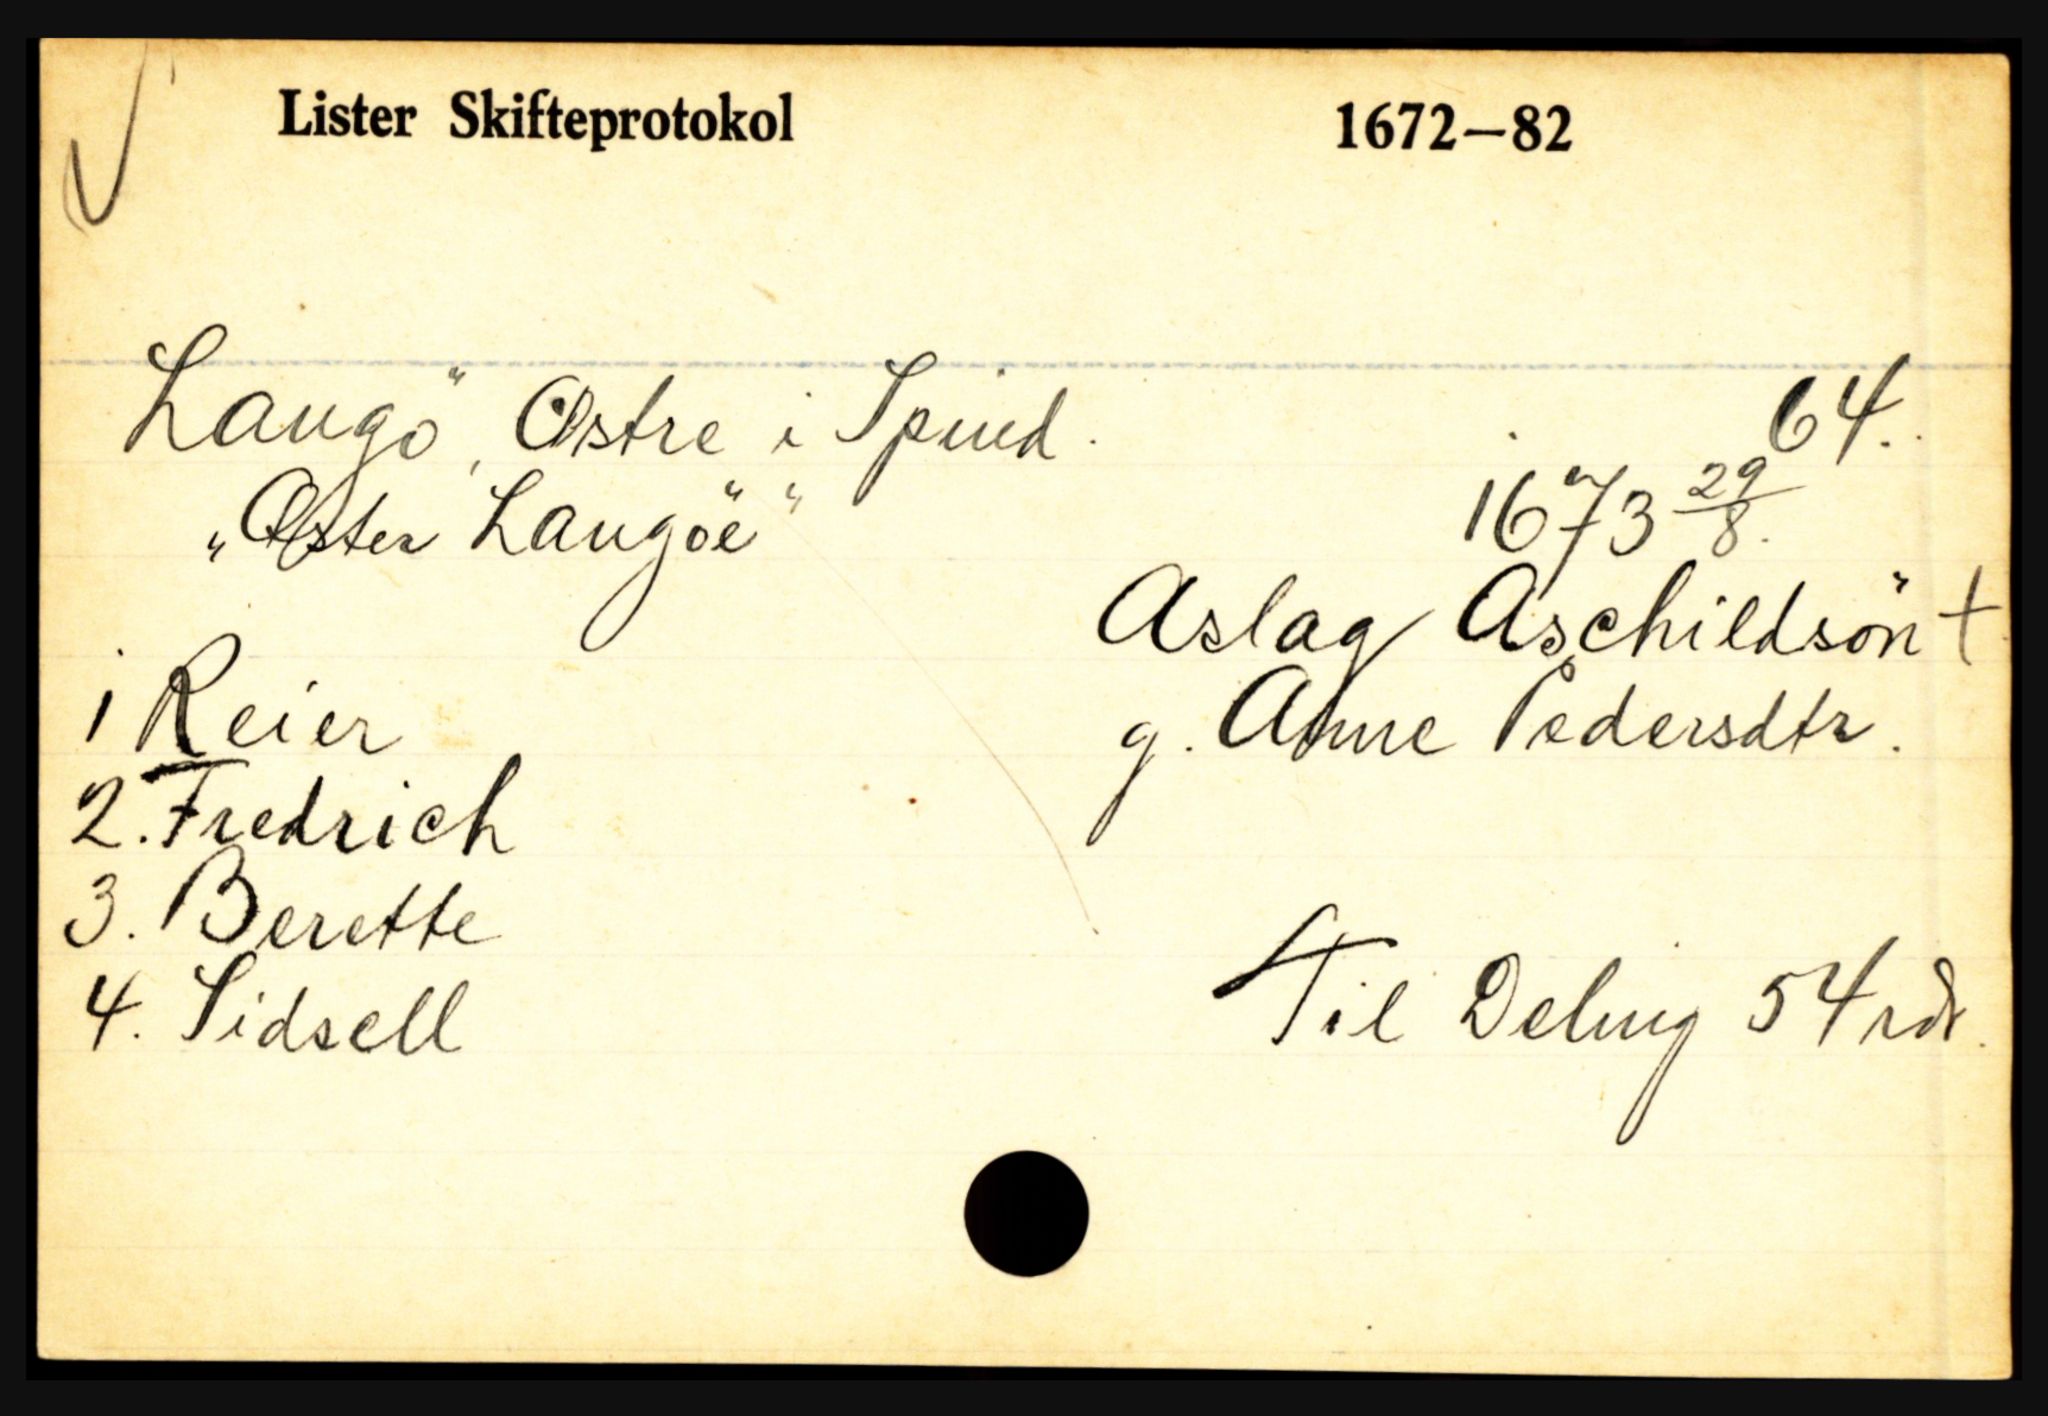 Lister Skifteprotokol 1672–82
Langö, Østre i Spind. 64.
"Øster Langöe" 1673 29/8.
Aslag Aschildsön †
g. Anne Pedersdtr.
1 Reier
2. Fredrich
3. Berette
4. Sidsell
Til Deling 54 rdr.